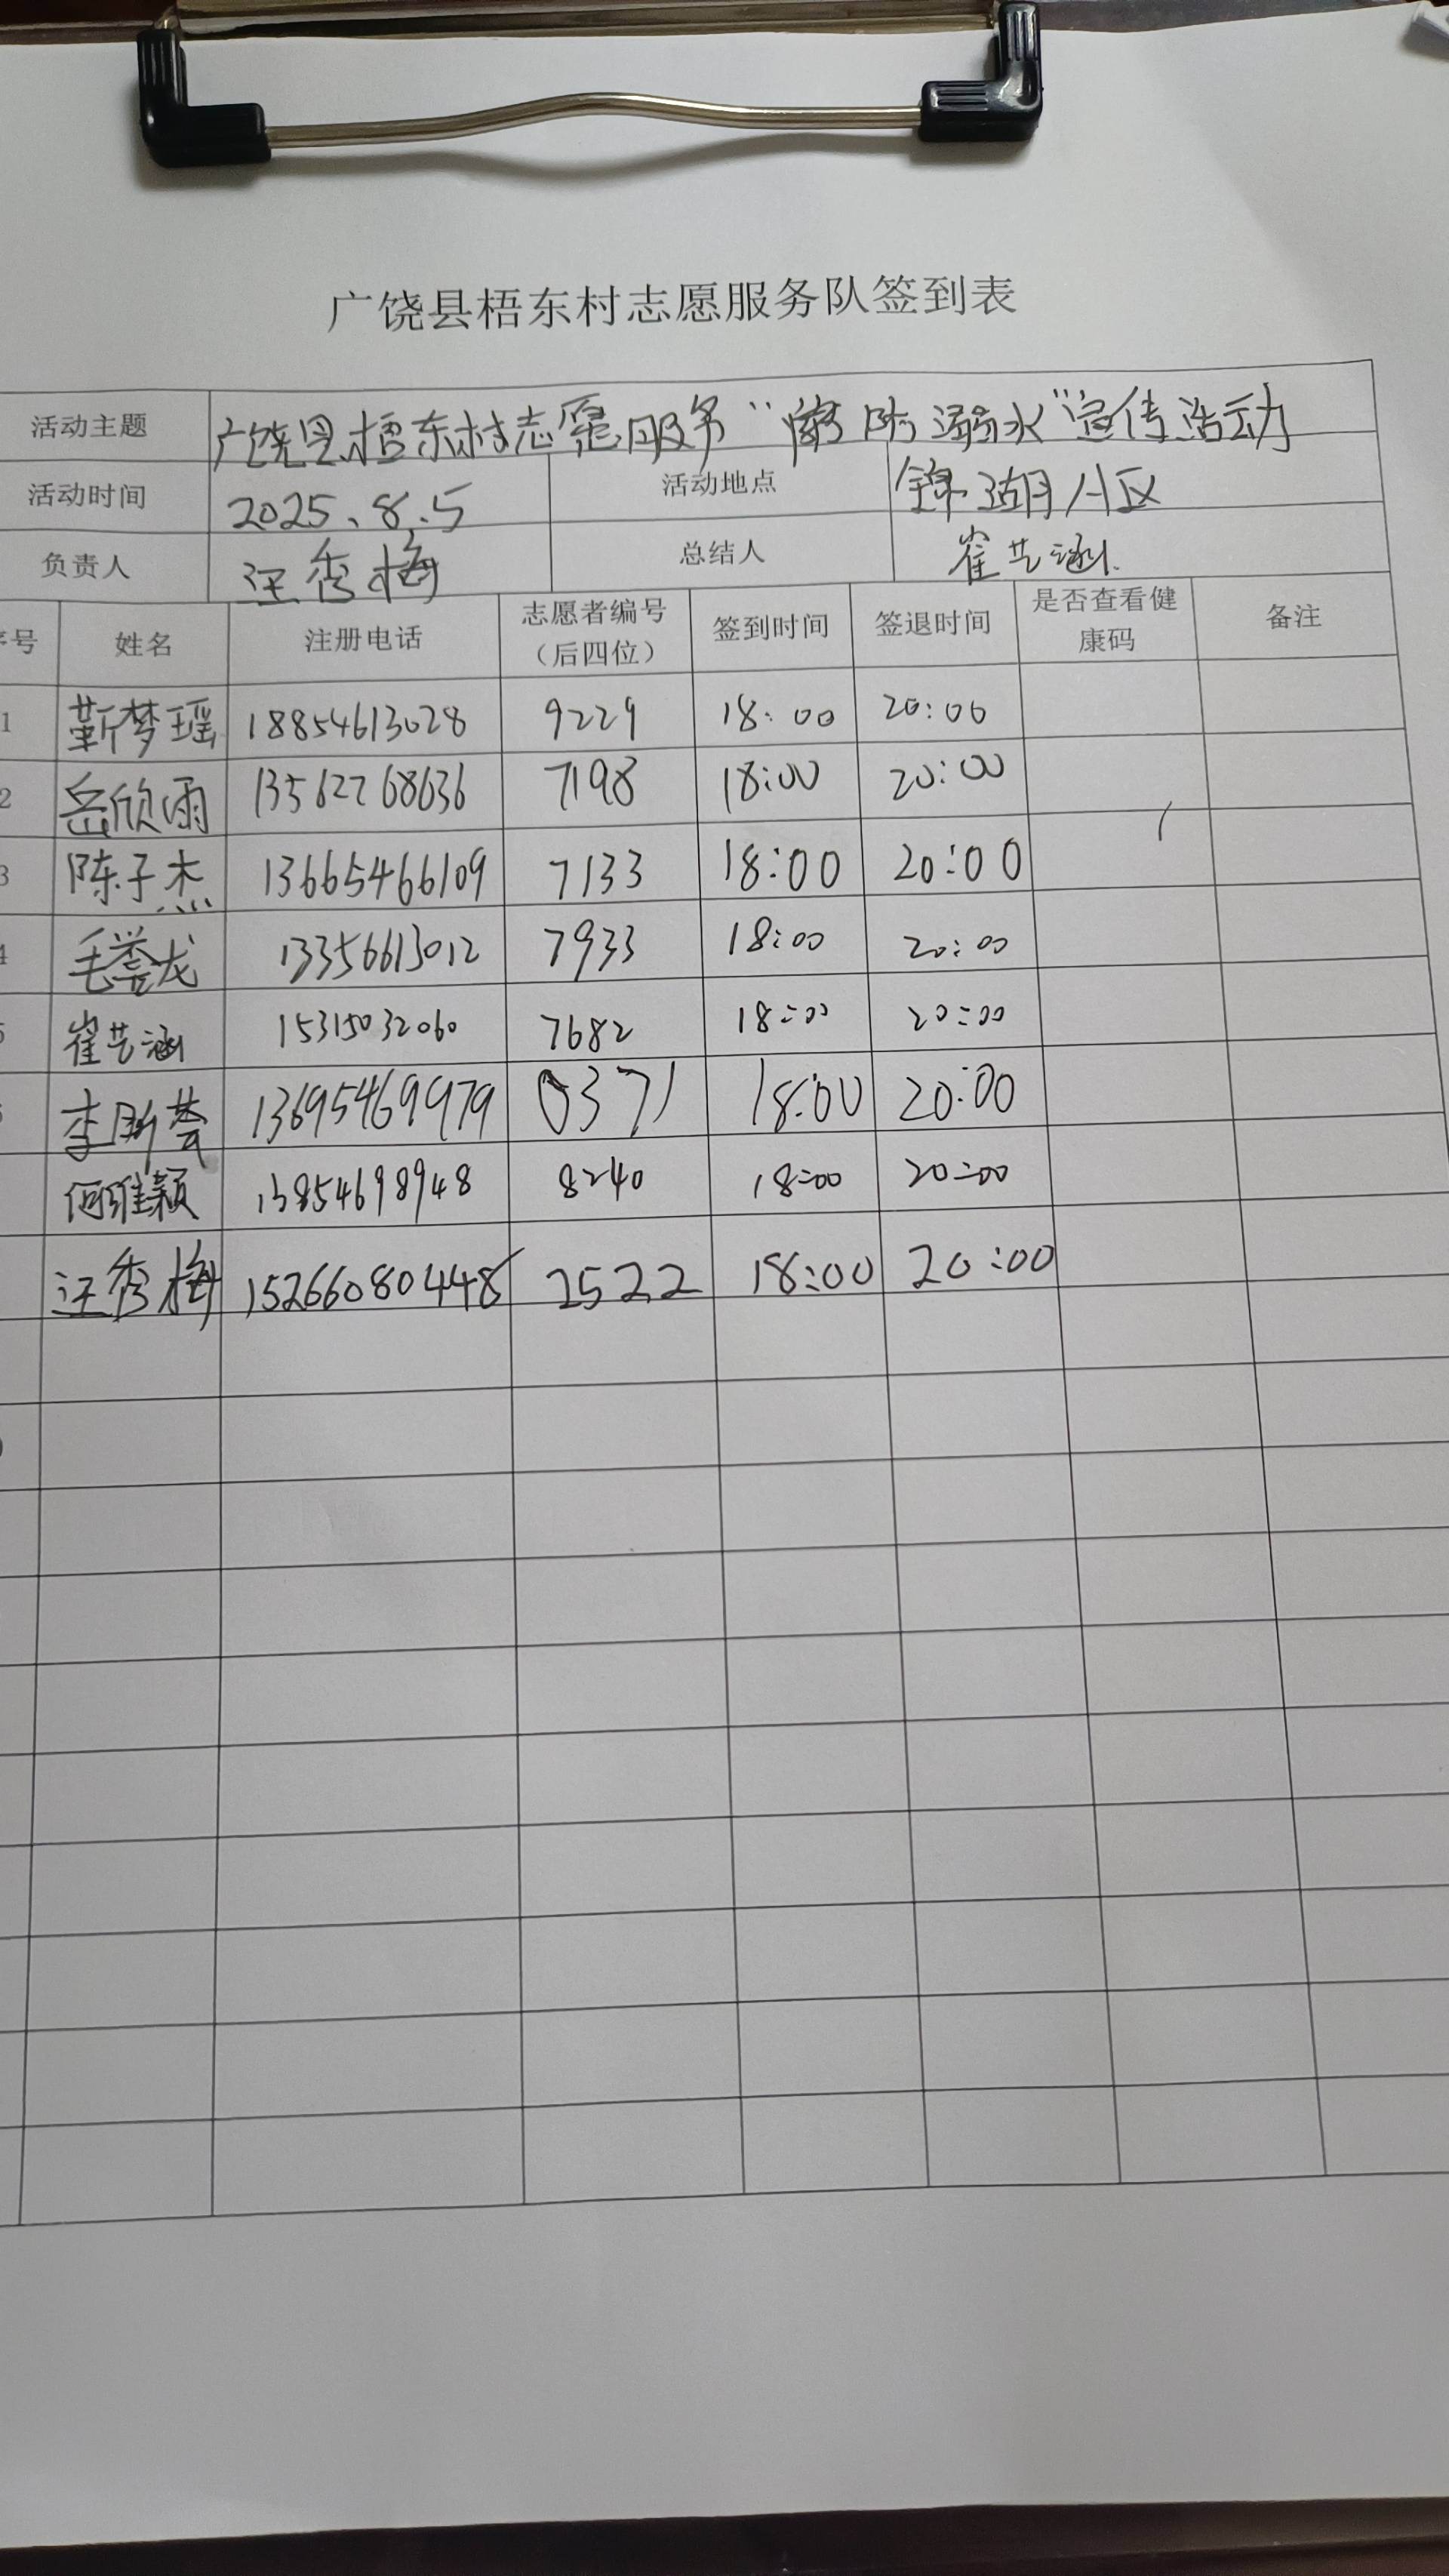 广饶县梧东村志愿服务队签到表
活动主题 广饶县梧东村志愿服务“防溺水”宣传活动
活动时间 2025.8.5 活动地点 锦湖小区
负责人 汪秀梅 总结人 崔艺涵
序号 姓名 注册电话 志愿者编号（后四位） 签到时间 签退时间 是否查看健康码 备注
1 靳梦瑶 18854613028 9229 18:00 20:00
2 岳欣雨 13562768636 7198 18:00 20:00
3 陈子杰 13665466109 7133 18:00 20:00
4 毛 龙 13356613012 7933 18:00 20:00
5 崔艺涵 15315032060 7682 18:00 20:00
李 13695469979 0371 18:00 20:00
何雅颖 13854698948 8240 18:00 20:00
汪秀梅 15266080448 2522 18:00 20:00